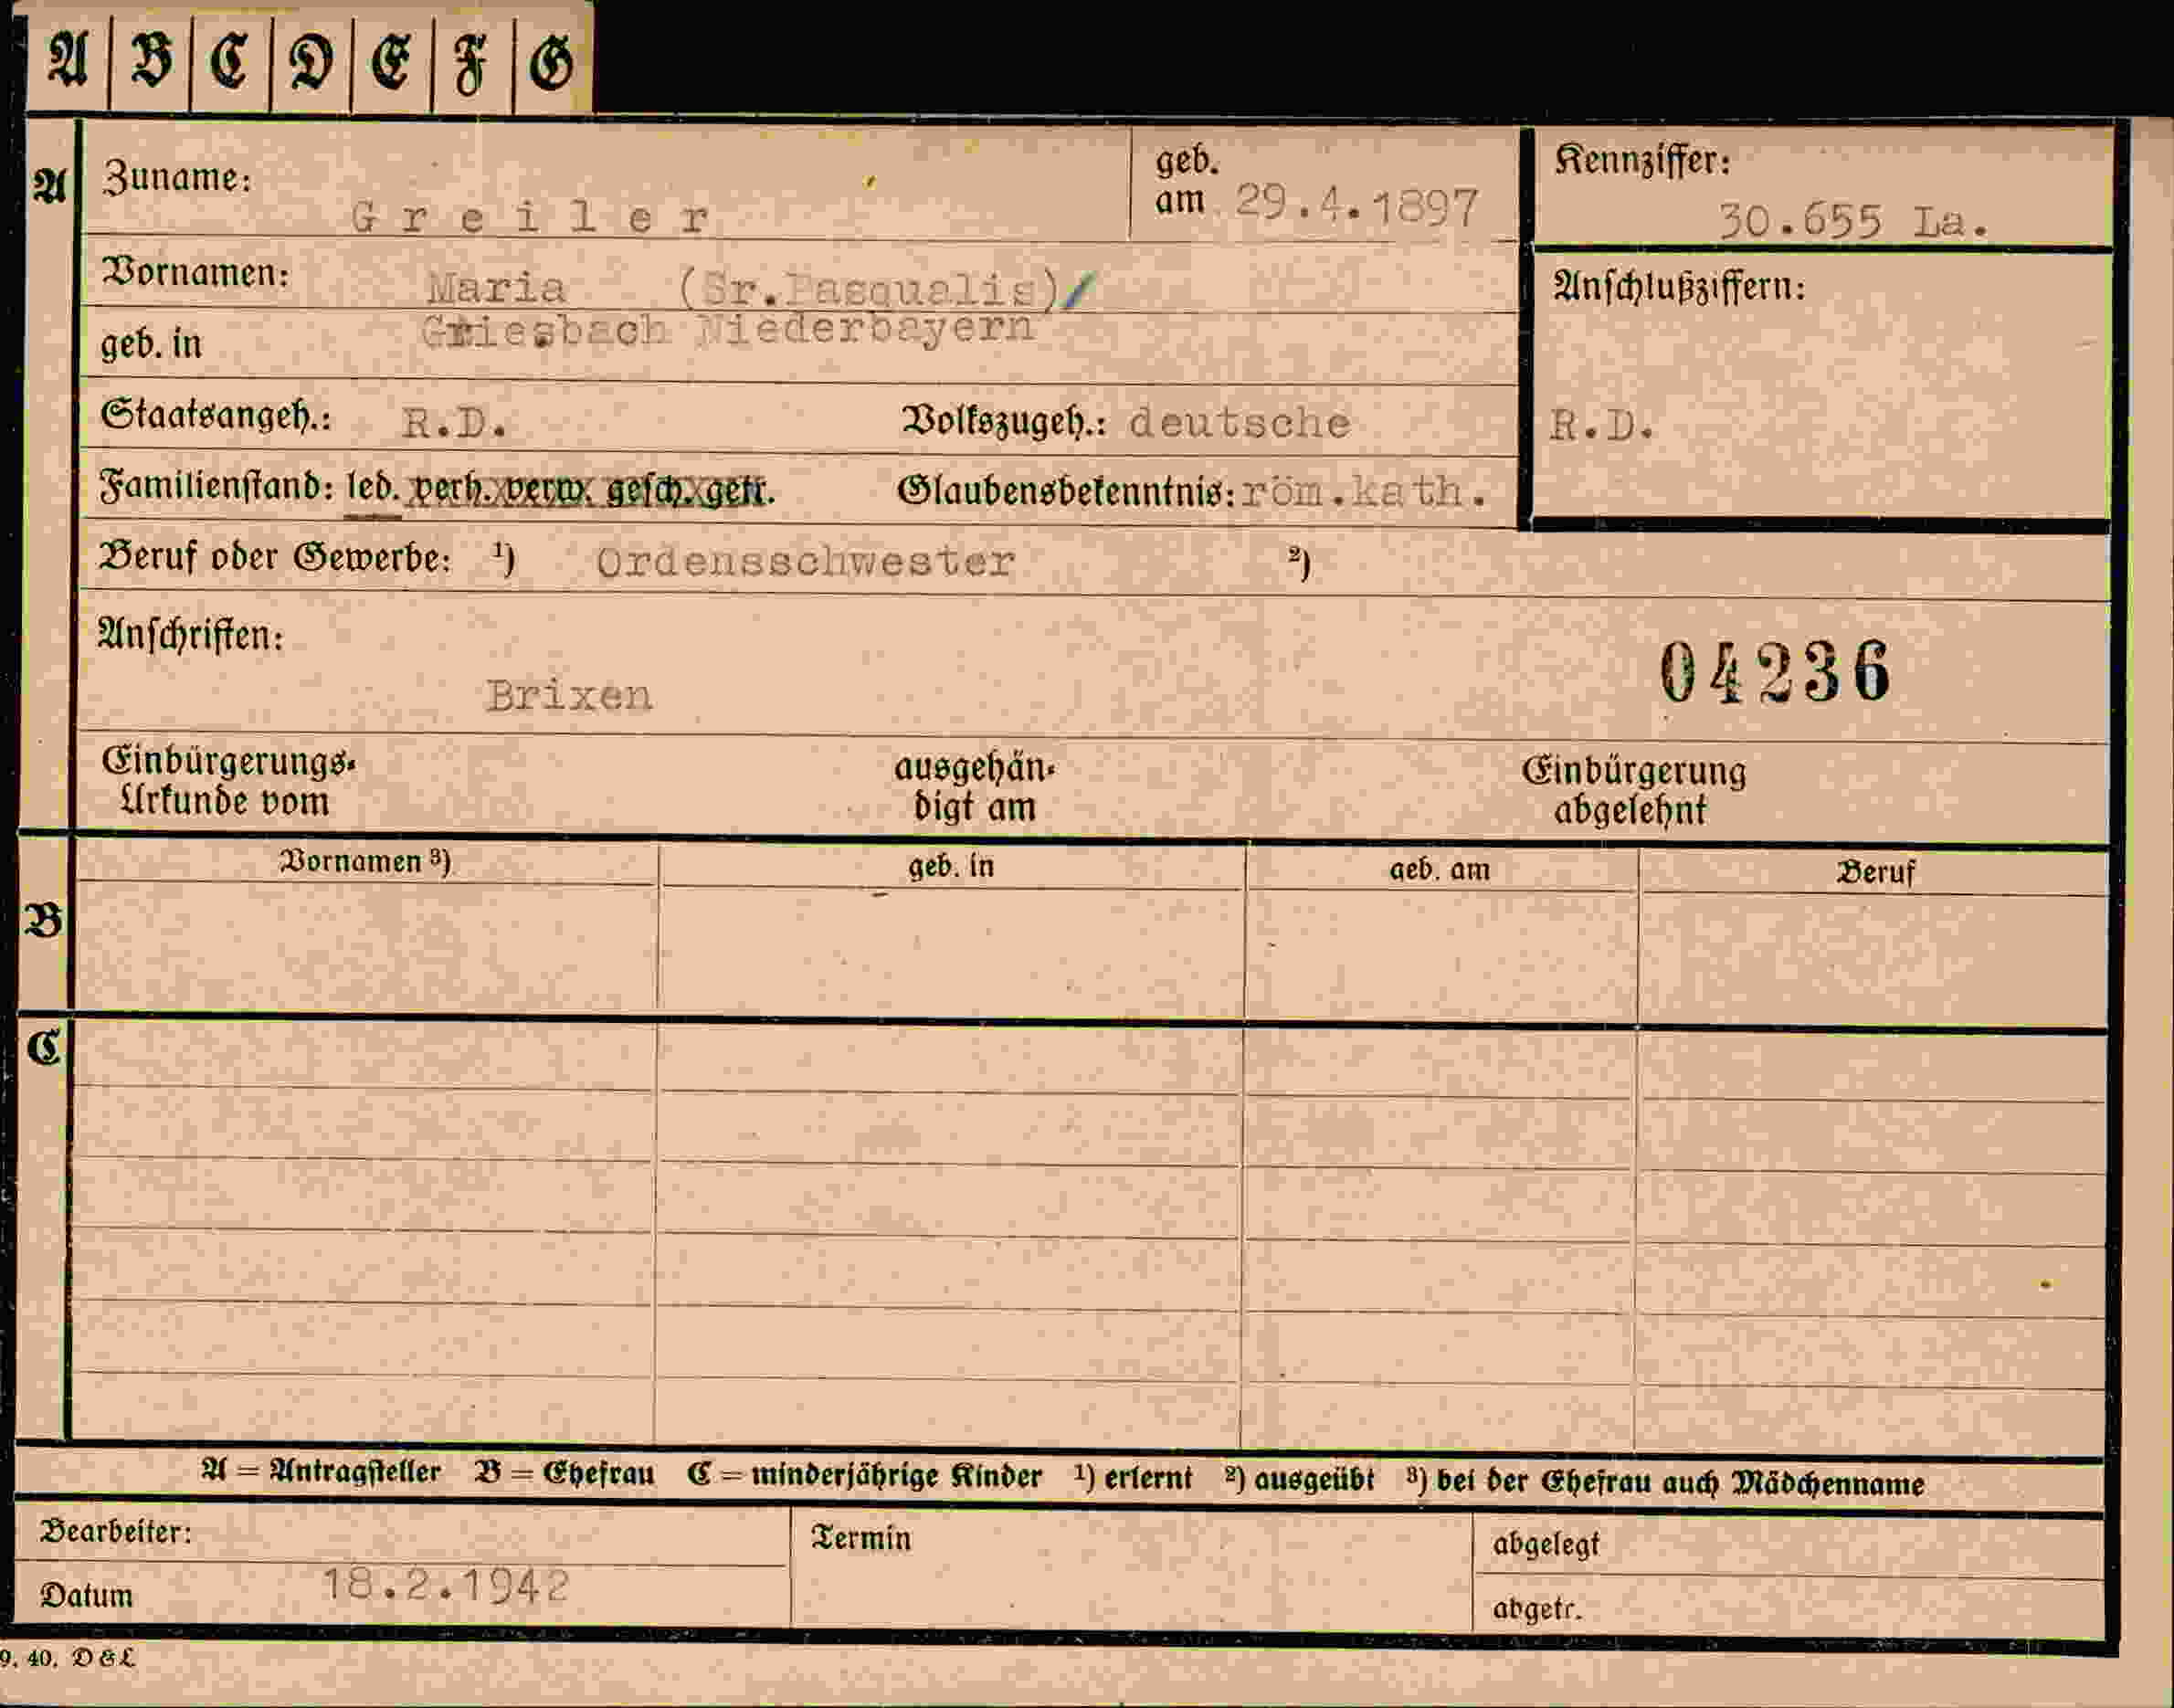 A B C D E F G
A Zuname: Greiler geb. am 29.4.1897 Kennziffer: 30.655 La.
Vornamen: Maria (Sr.Pasqualis)/ Anschlußziffern:
geb. in Griesbach Niederbayern
Staatsangeh.: R.D. Volkszugeh.: deutsche R.D.
Familienstand: led. verh. verw. gesch. getr. Glaubensbekenntnis: röm.kath.
Beruf oder Gewerbe: ¹) Ordensschwester ²)
Anschriften:
Brixen 04236
Einbürgerungs- ausgehän- Einbürgerung
Urkunde vom digt am abgelehnt
Vornamen ³) geb. in geb. am Beruf
B
C
A = Antragsteller B = Ehefrau C = minderjährige Kinder ¹) erlernt ²) ausgeübt ³) bei der Ehefrau auch Mädchenname
Bearbeiter: Termin abgelegt
Datum 18.2.1942 abgetr.
9. 40. D & L